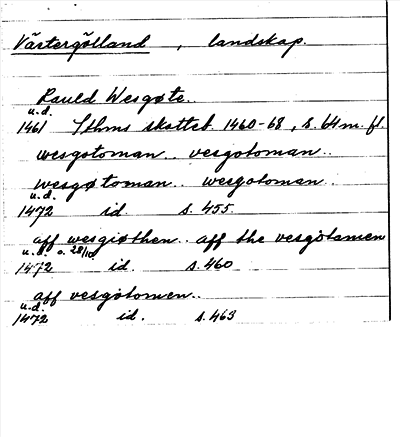 Västergötland , landskap.
Rauld Wesgøte..
u.d.
1461 Sthms skatteb. 1460-68, s. 64 m. fl.
wesgotoman.. vesgotoman..
wesgøtoman.. wesgotoman..
u.d.
1472 id. s. 455.
aff wesgiøthen.. aff the vesgötamen
u.d. o. 28/10
1472 id. s. 460
aff vesgötomen..
u.d.
1472 id. s. 463